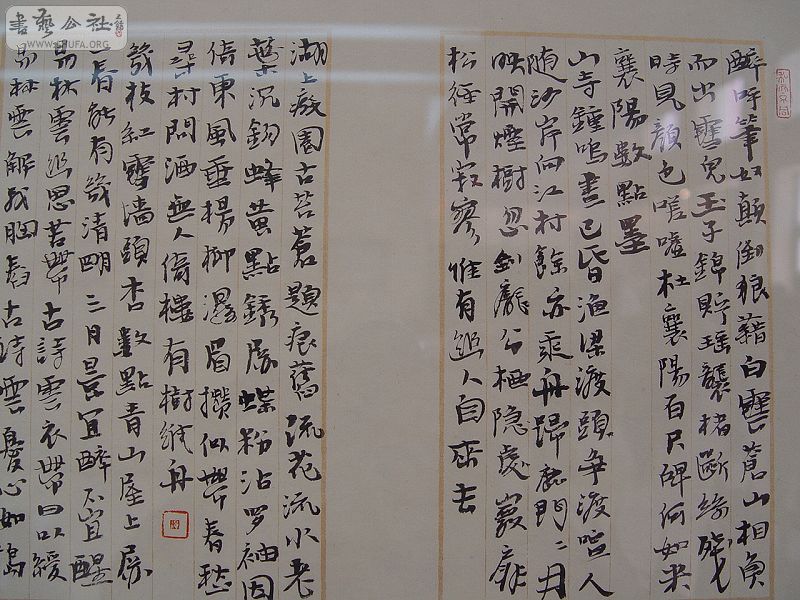 醉吟筆奴顛倒狼藉白雲蒼山相負
而出雪兒玉子錦貯瑤襲楮斷緣殘
時見顏也嗟嘘杜襄陽百尺碑何如米
襄陽數點墨
山寺鐘鳴晝已昏漁梁渡頭爭渡喧人
隨沙岸向江村餘亦乘舟歸鹿門二月
映開煙樹忽到龐公栖隱處巖扉
松徑常寂寥惟有幽人自來去
湖上廢園古苔蒼題痕舊流花流水老
葉沉鉤蜂黃點繡屏蝶粉沾羅袖困
倚東風垂楊柳瘦眉攢似帶春愁
尋村問酒無人倚樓有樹維舟
幾枝紅雪墻頭杏數點青山屋上屏
一春能有幾清明三月景宜醉不宜醒
易林雲幽思苦帶古詩雲衣帶日以緩
易林雲解我胸舂古詩雲憂心如搗
書藝公社
WWW.SHUFA.ORG